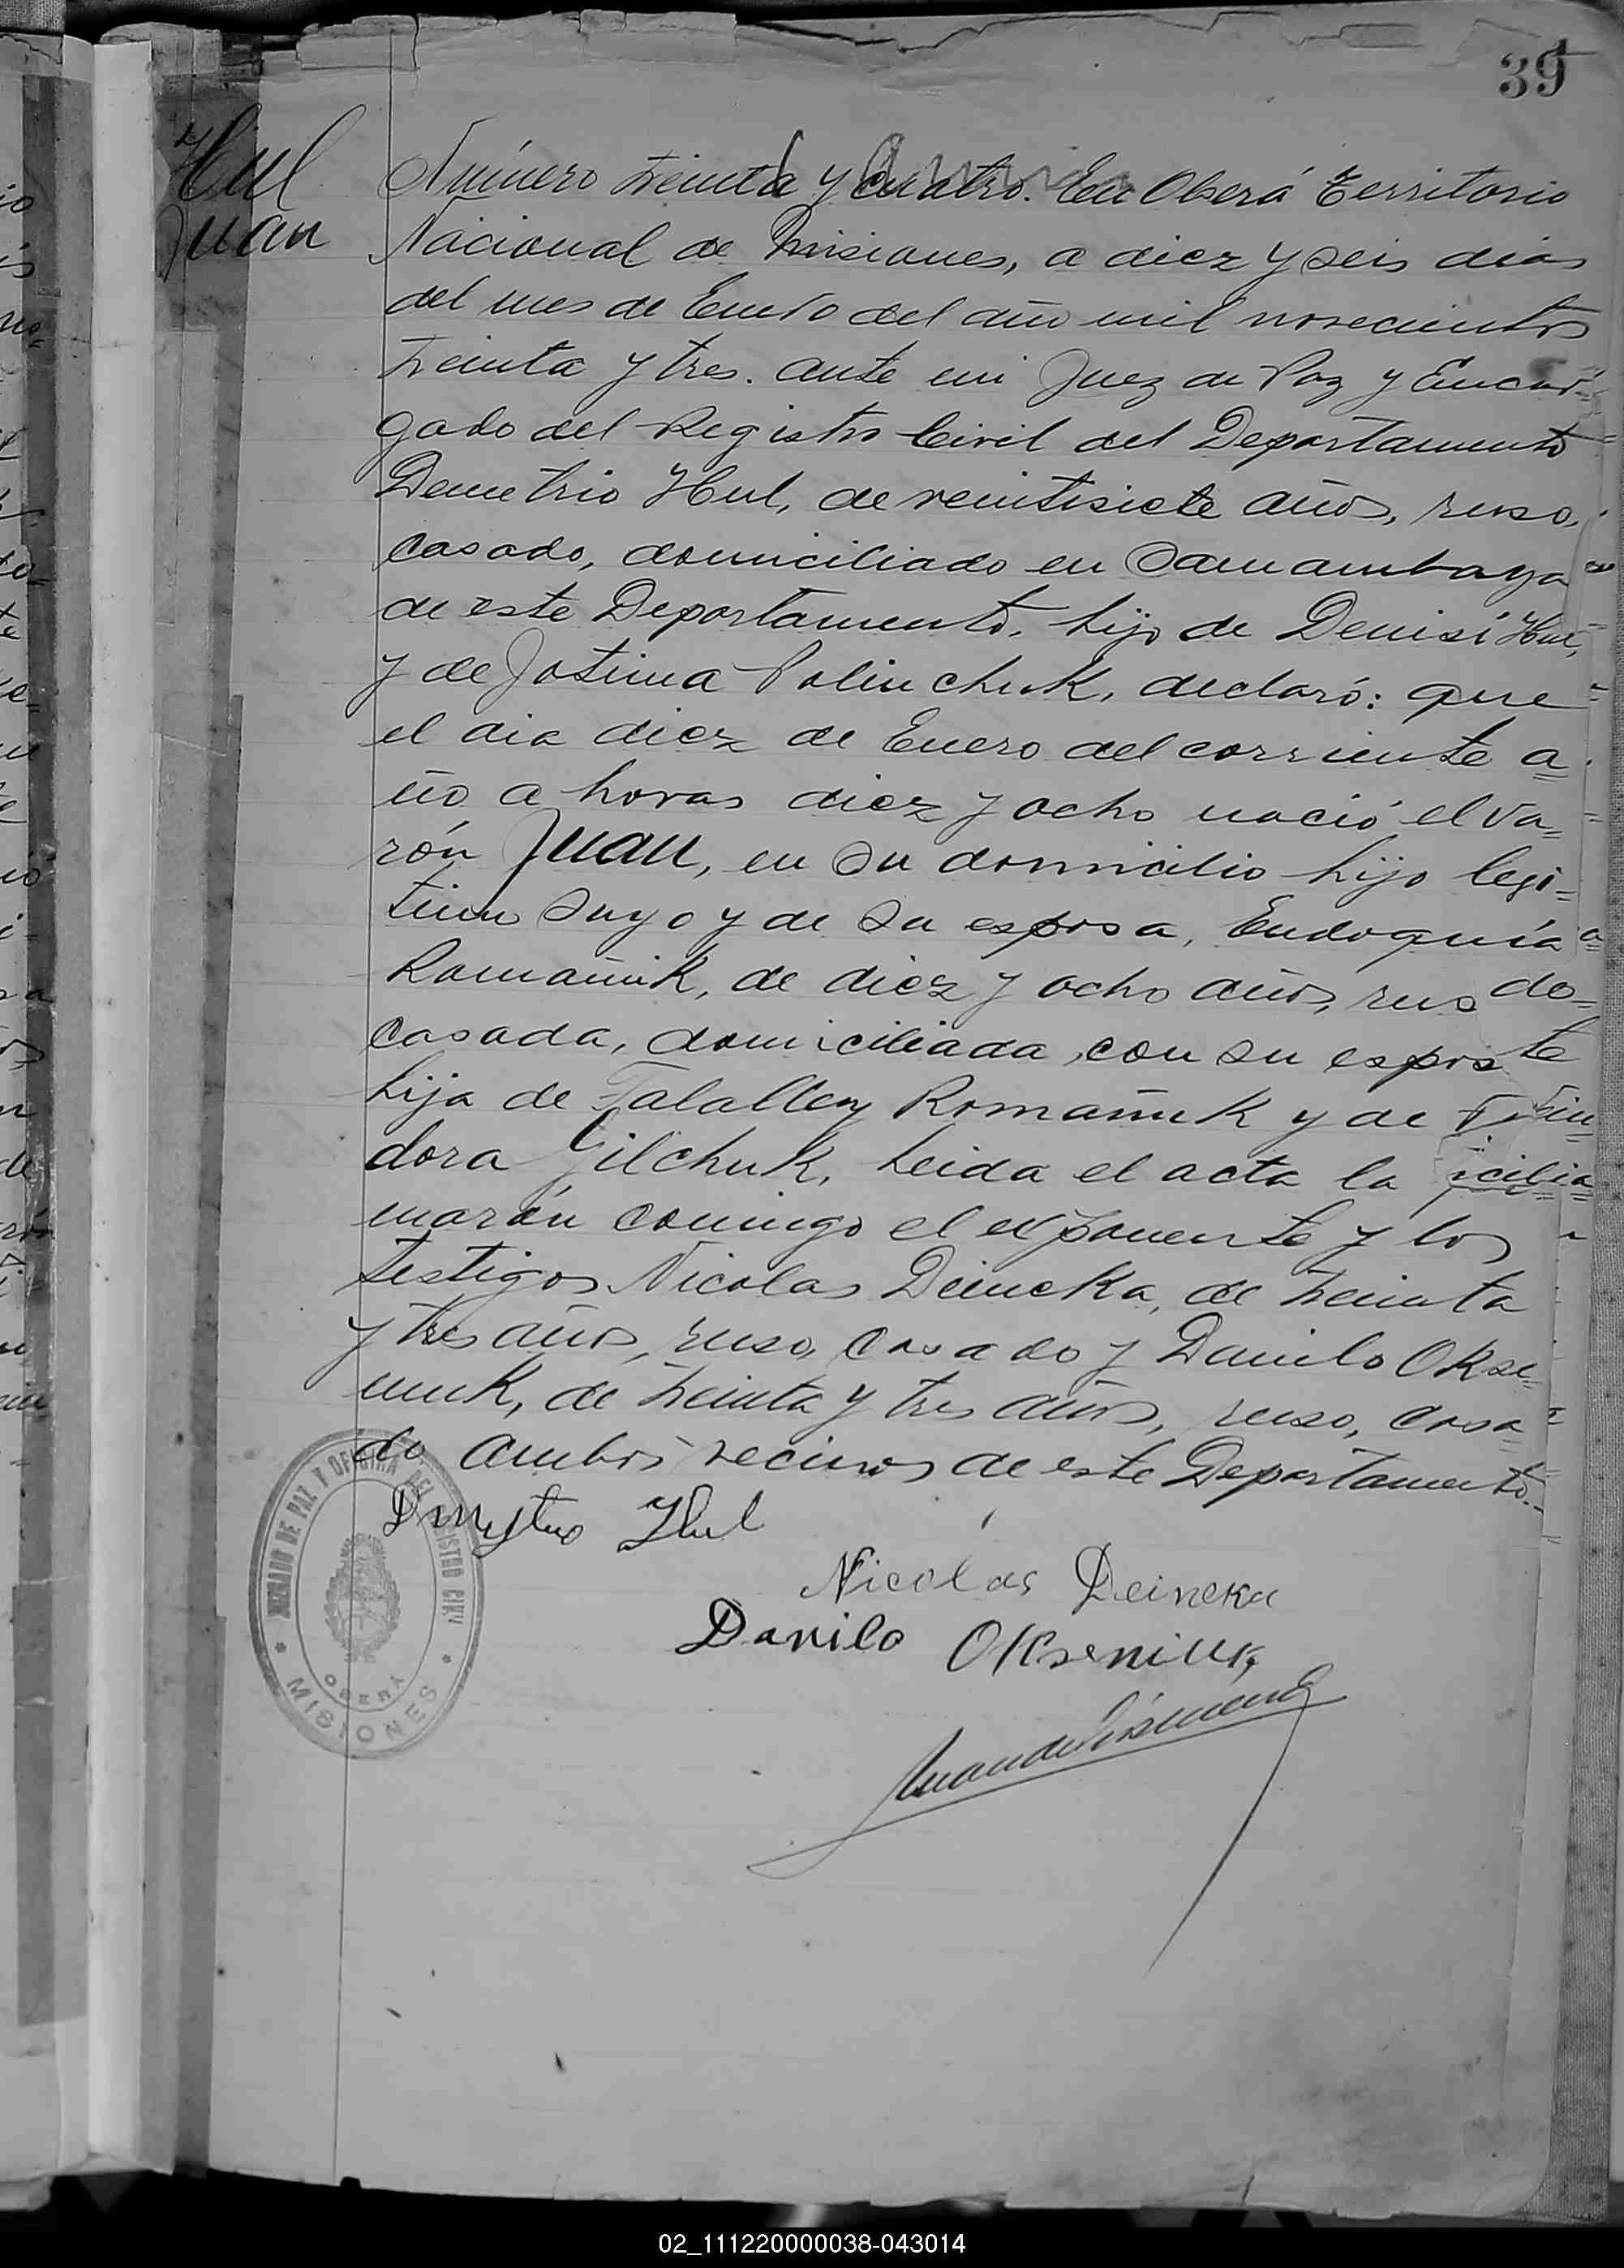 39
Hul
Juan
Número treinta y cuatro. En Oberá Territorio
Nacional de Misiones, a diez y seis dias
del mes de Enero del año mil novecientos
treinta y tres. ante mi Juez de Paz y Encar-
gado del Registro Civil del Departamento
Demetrio Hul, de veintisiete años, ruso,
casado, domiciliado en Samambaya
de este Departamento, hijo de Denisí Hul,
y de Jotima Polinchuk, declaró: que
el dia diez de Enero del corriente a=
ño a horas diez y ocho nació el va=
rón Juan, en su domicilio hijo legi=
timo suyo y de su esposa, Eudoquía
Romañuk, de diez y ocho años, rus
casada, domiciliada con su espos
hija de Talalley Romañuk y de
dora Gilchuk, Leida el acta la
maron conmigo el exponente y los
testigos Nicolas Deineka, de treinta
y tres años, ruso, casado y Danilo Okse=
niuk, de treinta y tres años, ruso, casa=
do ambos vecinos de este Departamento.-
Dmytro Hul
Nicolas Deineka
Danilo Okseniuk
JUZGADO DE PAZ Y OFICINA DEL REGISTRO CIVIL
OBERÁ
MISIONES
02_111220000038-043014